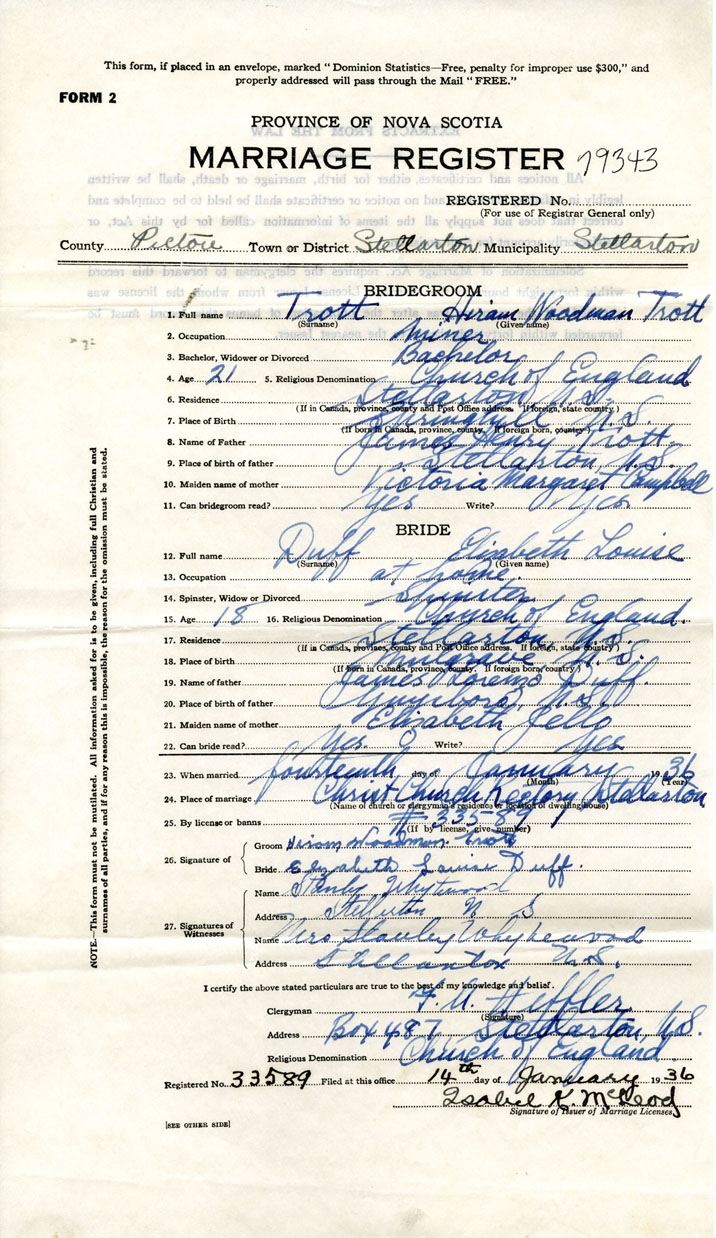 This form, if placed in an envelope, marked "Dominion Statistics—Free, penalty for improper use $300," and
properly addressed will pass through the Mail "FREE."
FORM 2
PROVINCE OF NOVA SCOTIA
MARRIAGE REGISTER 79343
REGISTERED No.
(For use of Registrar General only)
County Pictou Town or District Stellarton Municipality Stellarton
BRIDEGROOM
1. Full name Trott Hiram Woodman Trott
(Surname) (Given name)
2. Occupation Miner
3. Bachelor, Widower or Divorced Bachelor
4. Age 21 5. Religious Denomination Church of England
6. Residence Stellarton N.S.
(If in Canada, province, county and Post Office address. If foreign, state country.)
7. Place of Birth Springhill N.S.
(If born in Canada, province, county. If foreign born, country)
8. Name of Father James Henry Trott
9. Place of birth of father Stellarton, N.S.
10. Maiden name of mother Victoria Margaret Campbell
11. Can bridegroom read? yes Write? yes
BRIDE
12. Full name Duff Elizabeth Louise
(Surname) (Given name)
13. Occupation at home
14. Spinster, Widow or Divorced Spinster
15. Age 18 16. Religious Denomination Church of England.
17. Residence Stellarton N.S.
(If in Canada, province, county and Post Office address. If foreign, state country)
18. Place of birth N.S.
(If born in Canada, province, county. If foreign born, country)
19. Name of father James Lorenzo Duff.
20. Place of birth of father N.S.
21. Maiden name of mother Elizabeth Jello
22. Can bride read? Yes. Write? Yes
23. When married fourteenth day of January 1936
(Month) (Year)
24. Place of marriage Christ Church Rectory Stellarton
(Name of church or clergyman's residence or location of dwelling house)
25. By license or banns # 33589
(If by license, give number)
26. Signature of
Groom Hiram Woodman Trott
Bride Elizabeth Louise Duff.
27. Signatures of Witnesses
Name Stanly Whytwood
Address Stellarton N S
Name Mrs Stanley Whytewood
Address Stellarton N.S.
I certify the above stated particulars are true to the best of my knowledge and belief.
Clergyman
(Signature)
Address Box 487 Stellarton, N.S.
Religious Denomination Church of England
Registered No. 33589 Filed at this office 14th day of January 1936
Isabel K. McLeod
Signature of Issuer of Marriage Licenses
[SEE OTHER SIDE]
NOTE.—This form must not be mutilated. All information asked for is to be given, including full Christian and
surnames of all parties, and if for any reason this is impossible, the reason for the omission must be stated.